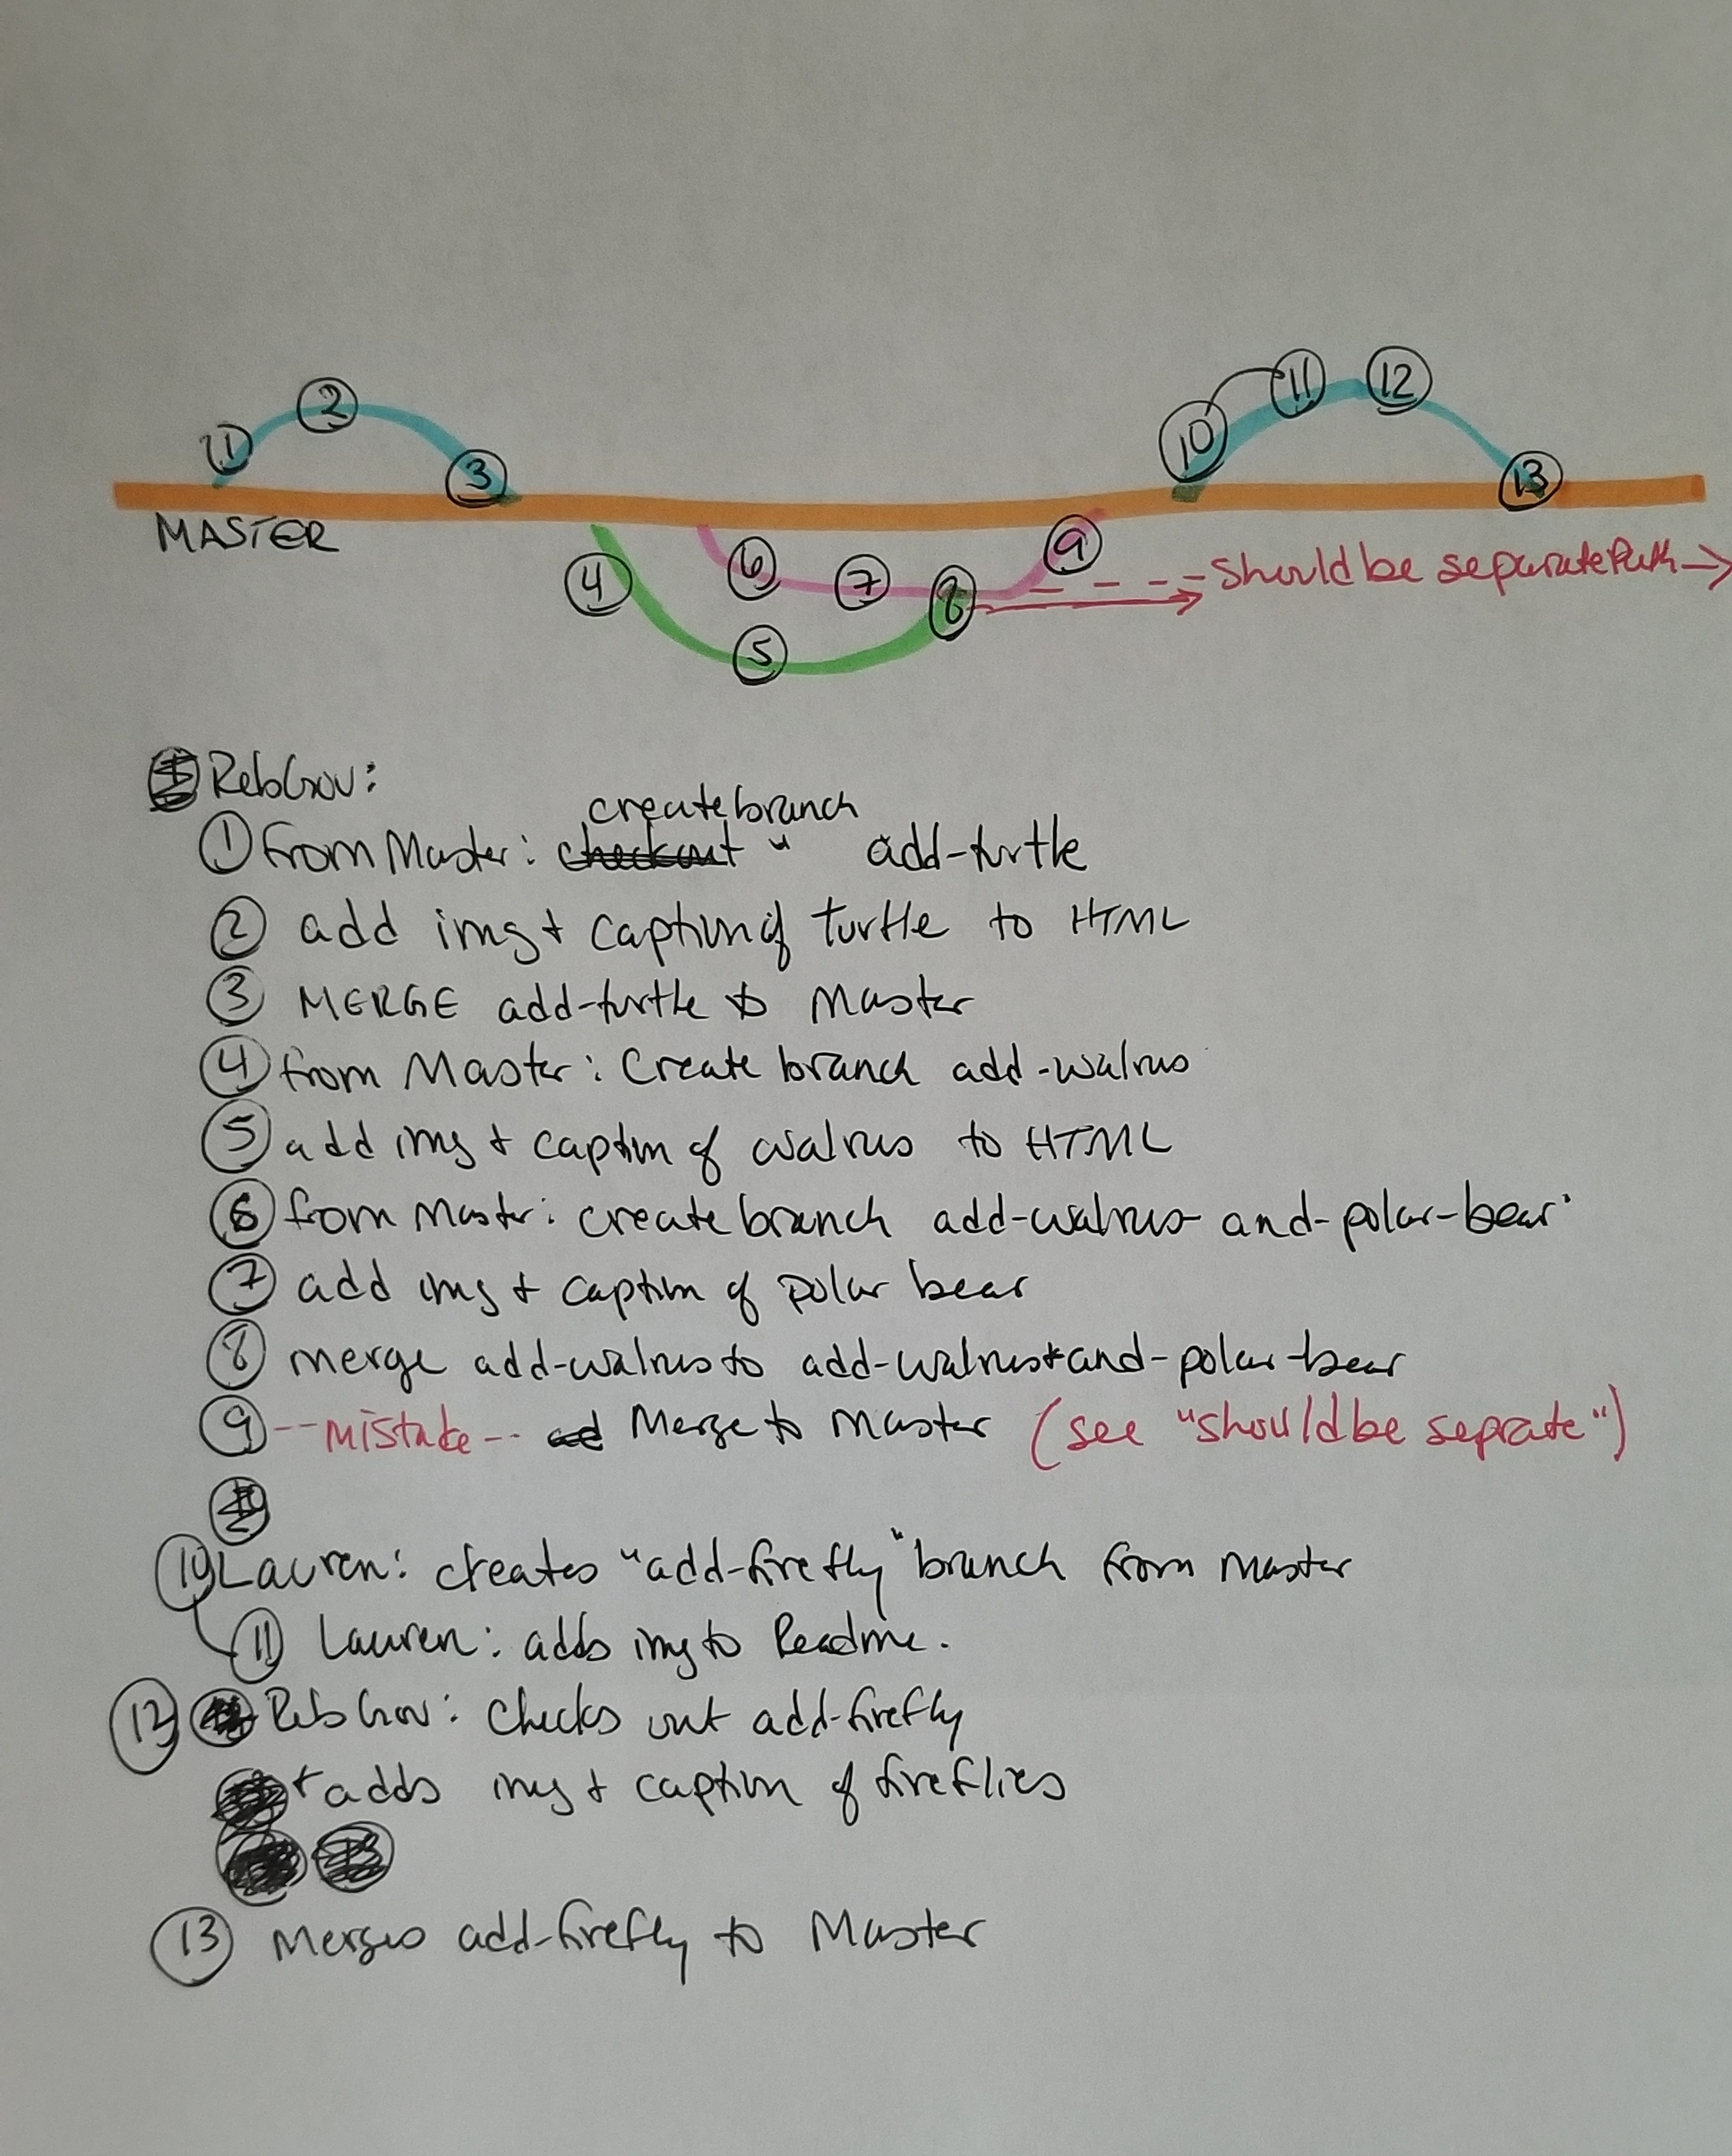 2
11
12
1
10
3
13
MASTER
4
6
7
8
9
should be separate Path
5
RebGov:
create branch
① from Master: checkout " add-turtle
② add img + caption of turtle to HTML
③ MERGE add-turtle to Master
④ from Master: Create branch add-walrus
⑤ add img + caption of walrus to HTML
⑥ from Master: create branch add-walrus-and-polar-bear
⑦ add img + caption of polar bear
⑧ merge add-walrus to add-walrus-and-polar-bear
⑨ --mistake-- Merge to Master (see "should be seprate")
⑩ Lauren: creates "add-firefly" branch from master
⑪ Lauren: adds img to Readme.
⑫ RebGov: checks out add-firefly
+ adds img + caption of fireflies
⑬ Merges add-firefly to Master